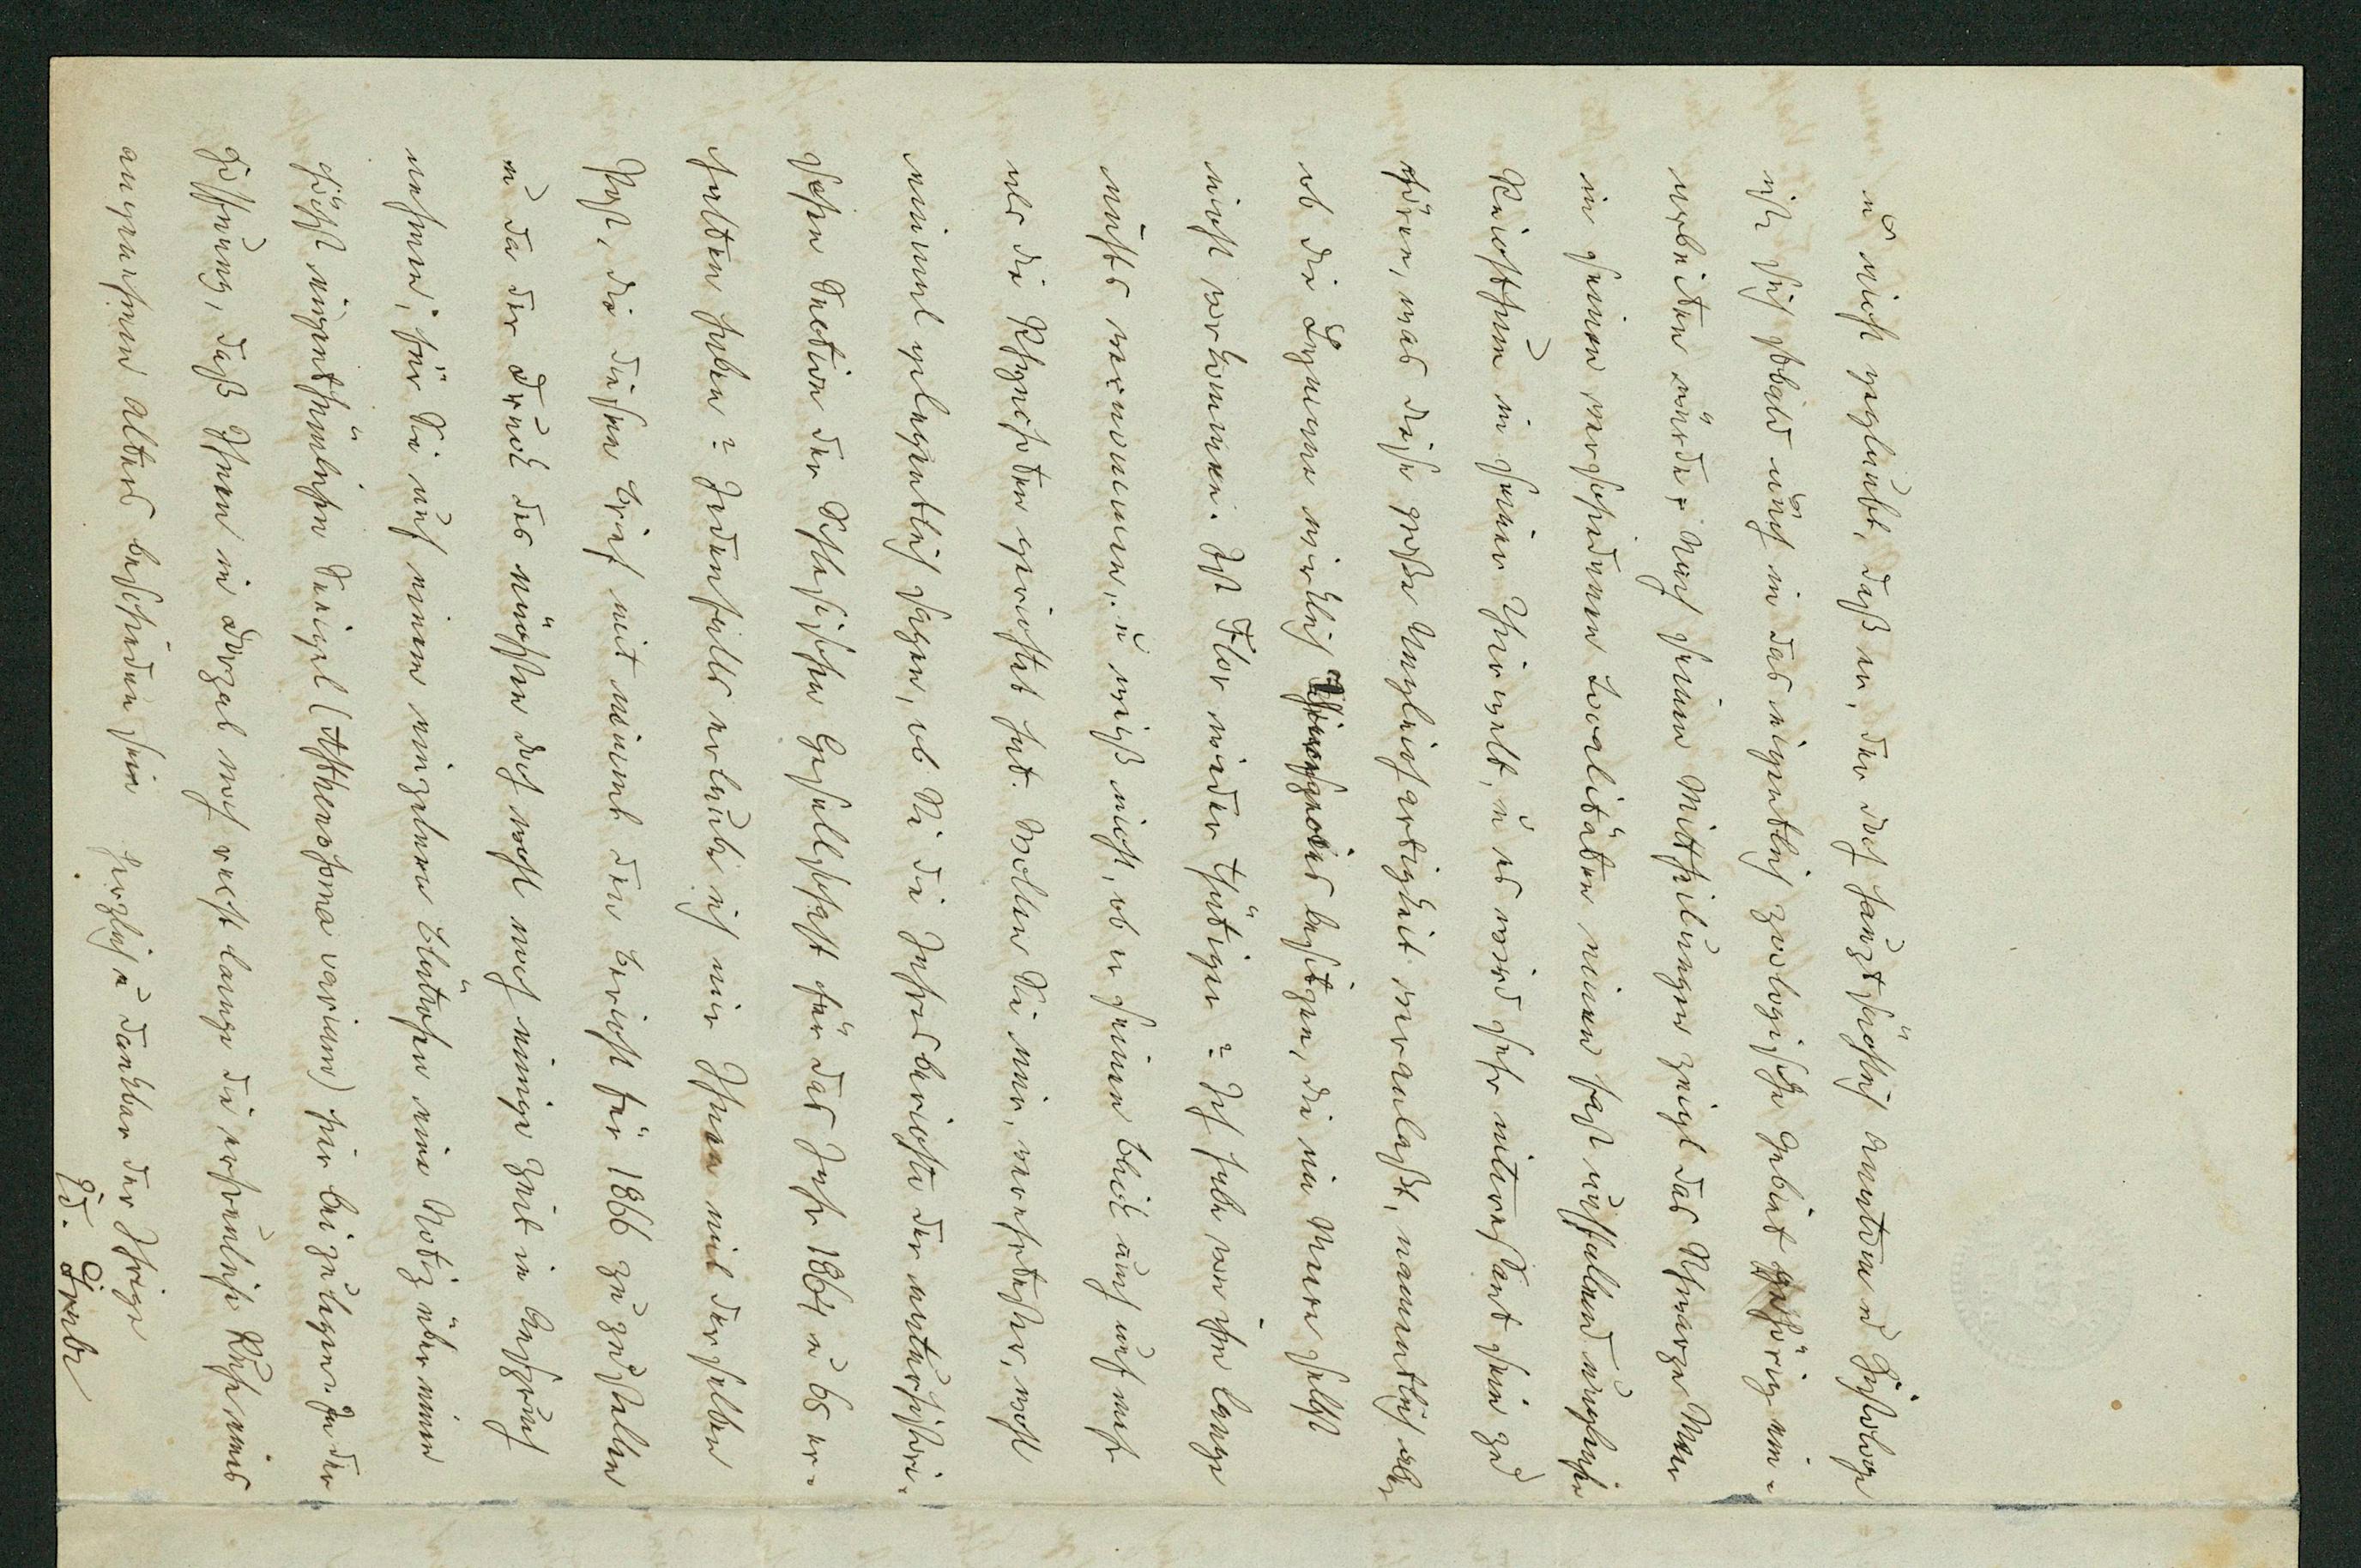 u nicht geglaubt, daß er, der doch hauptsächlich Anatom u Histologe
ist sich sobald auch in das eigentlich zoologische Gebiet gehörig ein-
arbeiten würde. Nach seinen Mittheilungen zeigt das Schwarze Meer
in seinen verschiedenen Localitäten einen fast auffallend ungleichen
Reichthum in seiner Thierwelt, u es wird sehr interessant sein zu
hören, was diese große Ungleichartigkeit veranlaßt, namentlich aber
ob die Lagunen wirklich besitzen, die im Meere selbst
nicht vorkommen. Ist Flor wieder thätiger? Ich habe von ihm lange
nichts vernommen, u weiß nicht, ob er seinen Blick auch auf mehr
als die Rhynchoten gerichtet hat. Wollen Sie mir, verehrtester, wohl
einmal gelegentlich sagen, ob Sie die Jahresberichte der naturhistori-
schen Section der Schlesischen Gesellschaft für das Jahr 1864 u 65 er-
halten haben? Jedenfalls erlaube ich mir Ihnen mit derselben
Post, die diesen Brief mit nimmt den Bericht für 1866 zuzustellen
u da der Druck des nächsten doch wohl noch einige Zeit in Anspruch
nehmen, für Sie auf einem einzelnen Blättchen eine Notiz über einen
höchst eigenthümlichen Seeigel (Asthenosoma varium) hier beizulegen. In der
Hoffnung, daß Ihnen in Dorpat noch recht lange die erfreuliche Ruhe eines
angenehmen Alters beschieden sein herzlich u dankbar der Ihrige
Ed. Grube